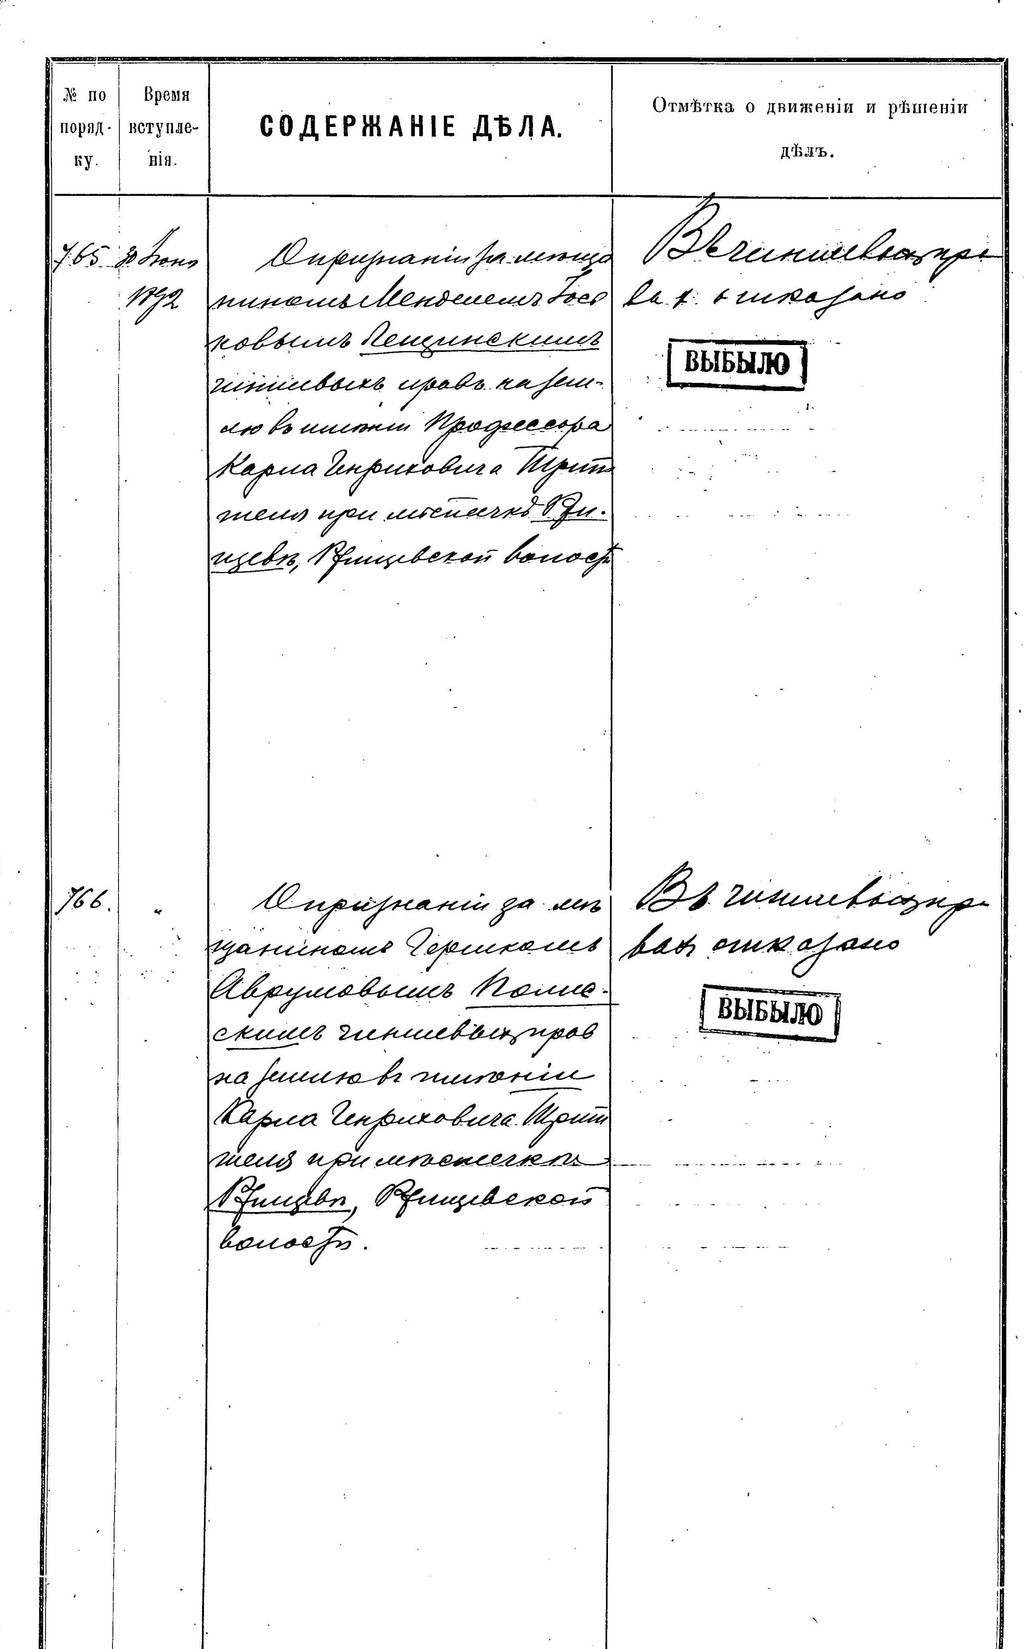 № по поряд- ку.
Время вступле- нія.
СОДЕРЖАНІЕ ДѢЛА.
Отмѣтка о движеніи и рѣшеніи дѣлъ.
765
30 Іюня
1892
О признаніи за мѣща
ниномъ Менделемъ Гось
ковымъ Лещинскимъ
чиншевыхъ правъ на зем-
лю въ имѣніи Профессора
Карла Генриховича Трит
шеля при мѣстечкѣ Ржи-
щевѣ, Ржищевской волости
Въ чиншевыхъ пра
вахъ отказано
ВЫБЫЛО
766.
"
О признаніи за мѣ
щаниномъ Гершкомъ
Аврумовымъ Полис-
скимъ чиншевыхъ правъ
на землю въ имѣніи
Карла Генриховича Трит
шеля при мѣстечкѣ
Ржищевѣ, Ржищевской
волости.
Въ чиншевыхъ пра
вахъ отказано
ВЫБЫЛО